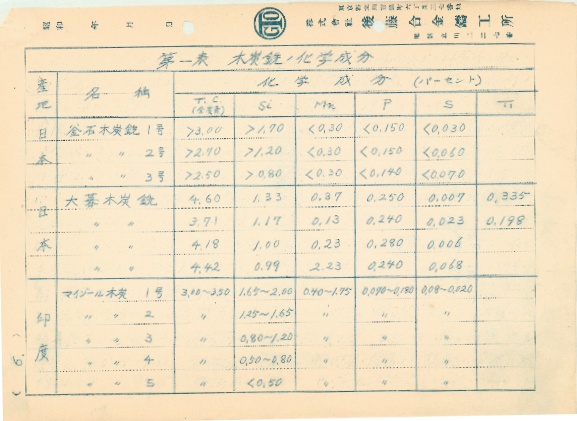 昭和 年 月 日
GTO
株式會社 後藤合金鑄工所
第一表 木炭銑ノ化学成分
産地 名稱 化学成分 (パーセント)
T.C (全炭素) Si Mn P S Ti
日本 釜石木炭銑 1号 >3.00 >1.70 <0.30 <0.150 <0.030
〃 〃 2号 >2.70 >1.20 <0.30 <0.150 <0.060
〃 〃 3号 >2.50 >0.80 <0.30 <0.140 <0.070
日本 大暮木炭銑 4.60 1.33 0.37 0.250 0.007 0.335
〃 〃 3.71 1.17 0.13 0.240 0.023 0.198
〃 〃 4.18 1.00 0.23 0.280 0.006
〃 〃 4.42 0.99 2.23 0.240 0.068
印度 マイソール木炭 1号 3.00~3.50 1.65~2.00 0.40~1.75 0.090~0.180 0.08~0.020
〃 〃 2 〃 1.25~1.65 〃 〃 〃
〃 〃 3 〃 0.80~1.20 〃 〃 〃
〃 〃 4 〃 0.50~0.80 〃 〃 〃
〃 〃 5 〃 <0.50 〃 〃 〃
(6.)